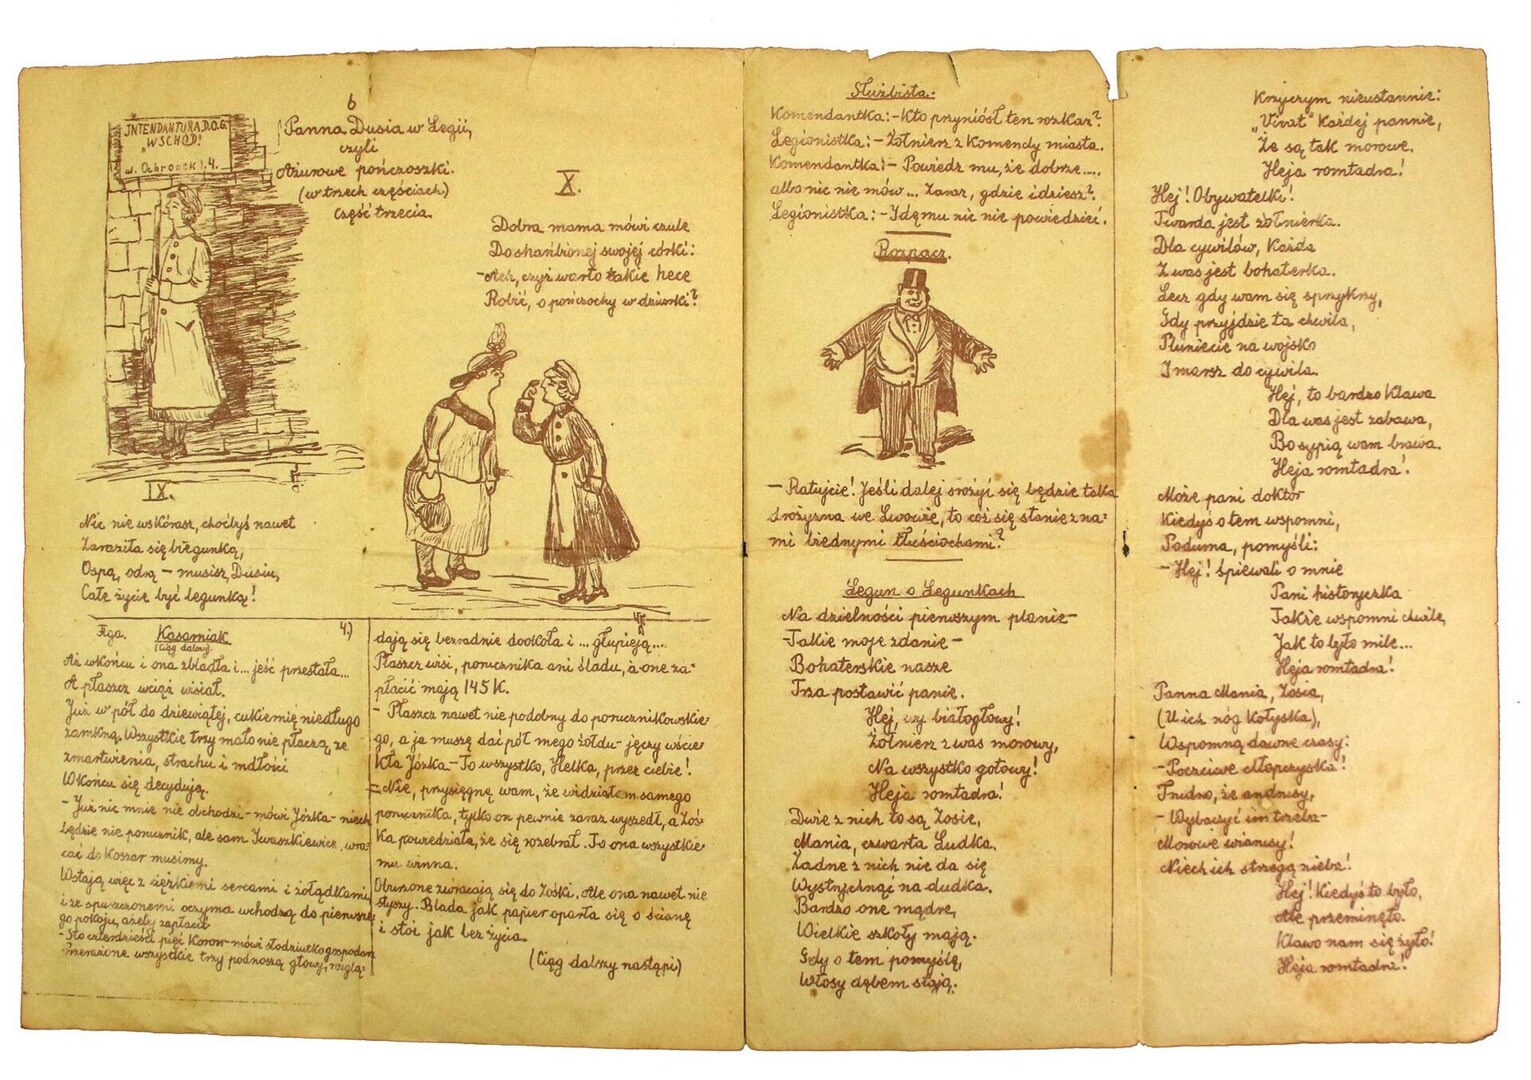 6
INTENDANTURA D.O.G.
"WSCHÓD"
ul. Ochronek l. 4.
Panna Dusia w Legii,
czyli
Ażurowe pończoszki.
(w trzech częściach)
Część trzecia.
IX.
Nic nie wskórasz, choćbyś nawet
Zaraziła się biegunką,
Ospą, odrą – musisz, Dusiu,
Całe życie być legunką!
X.
Dobra mama mówi czule
Do shańbionej swojej córki:
- Ach, czyż warto takie hece
Robić, o pończochy w dziurki?
Figa. Kasarniak 4.)
(Ciąg dalszy)
Aż wkońcu i ona zbladła i... jeść przestała...
A płaszcz wciąż wisiał.
Już w pół do dziewiątej, cukiernię niedługo
zamkną. Wszystkie trzy mało nie płaczą ze
zmartwienia, strachu i mdłości
Wkońcu się decydują.
- Już nic mnie nie obchodzi – mówi Józka – niech
będzie nie porucznik, ale sam Iwaszkiewicz, wra-
cać do Koszar musimy.
Wstają więc z ciężkiemi sercami i żołądkami
i ze spuszczonemi oczyma wchodzą do pierwsze-
go pokoju, ażeby zapłacić
- Sto czterdzieści pięć Koron – mówi słodziutko gospodarz
Przerażone wszystkie trzy podnoszą głowy, rozglą-
dają się bezradnie dookoła i ... głupieją...
Płaszcz wisi, porucznika ani śladu, a one za-
płacić mają 145 K.
- Płaszcz nawet nie podobny do porucznikowskie-
go, a ja muszę dać pół mego żołdu – jęczy wście-
kła Józka – To wszystko, Helka, przez ciebie!
- Nie, przysięgnę wam, że widziałam samego
porucznika, tylko on pewnie zaraz wyszedł, a Zoś-
ka powiedziała, że się rozebrał. To ona wszystkie-
mu winna.
Oburzone zwracają się do Zośki. Ale ona nawet nie
słyszy. Blada jak papier oparła się o ścianę
i stoi jak bez życia.
(Ciąg dalszy nastąpi)
Służbista:
Komendantka: – Kto przyniósł ten rozkaz?
Legionistka: – Żołnierz z Komendy miasta.
Komendantka: – Powiedz mu, że dobrze....
albo nic nie mów... Zaraz, gdzie idziesz?
Legionistka: – Idę mu nic nie powiedzieć.
Rozpacz.
– Ratujcie! Jeśli dalej srożyć się będzie taka
drożyzna we Lwowie, to cóż się stanie z na-
mi biednymi tłuściochami?
Legun o Legunkach
Na dzielności pierwszym planie –
– Takie moje zdanie –
Bohaterskie nasze
Trza postawić panie.
Hej, wy białogłowy!
Żołnierz z was morowy,
Na wszystko gotowy!
Heja romtadra!
Dwie z nich to są Zosie,
Mania, czwarta Ludka.
Żadne z nich nie da się
Wystrychnąć na dudka.
Bardzo one mądre,
Wielkie szkoły mają.
Gdy o tem pomyślę,
Włosy dębem stają.
Krzyczym nieustannie:
„Vivat" każdej pannie,
Że są tak morowe.
Heja romtadra!
Hej! Obywatelki!
Twarda jest żołnierka.
Dla cywilów, każda
Z was jest bohaterka.
Lecz gdy wam się sprzykrzy,
Gdy przyjdzie ta chwila,
Pluniecie na wojsko
I marsz do cywila.
Hej, to bardzo klawa
Dla was jest zabawa,
Bo sypią wam brawa.
Heja romtadra!
Może pani doktor
Kiedyś o tem wspomni,
Poduma, pomyśli:
– Hej! śpiewali o mnie
Pani historyczka
Także wspomni chwile,
Jak to było mile...
Heja romtadra!
Panna Mania, Zosia,
(U ich nóg Kołyska),
Wspomną dawne czasy:
– Poczciwe chłopczyska!
Trudno, że andrusy,
– Wybaczyć im trzeba –
Morowe wiarusy!
Niech ich strzegą nieba!
Hej! Kiedyś to było,
Ale przeminęło.
Klawo nam się żyło!
Heja romtadra!